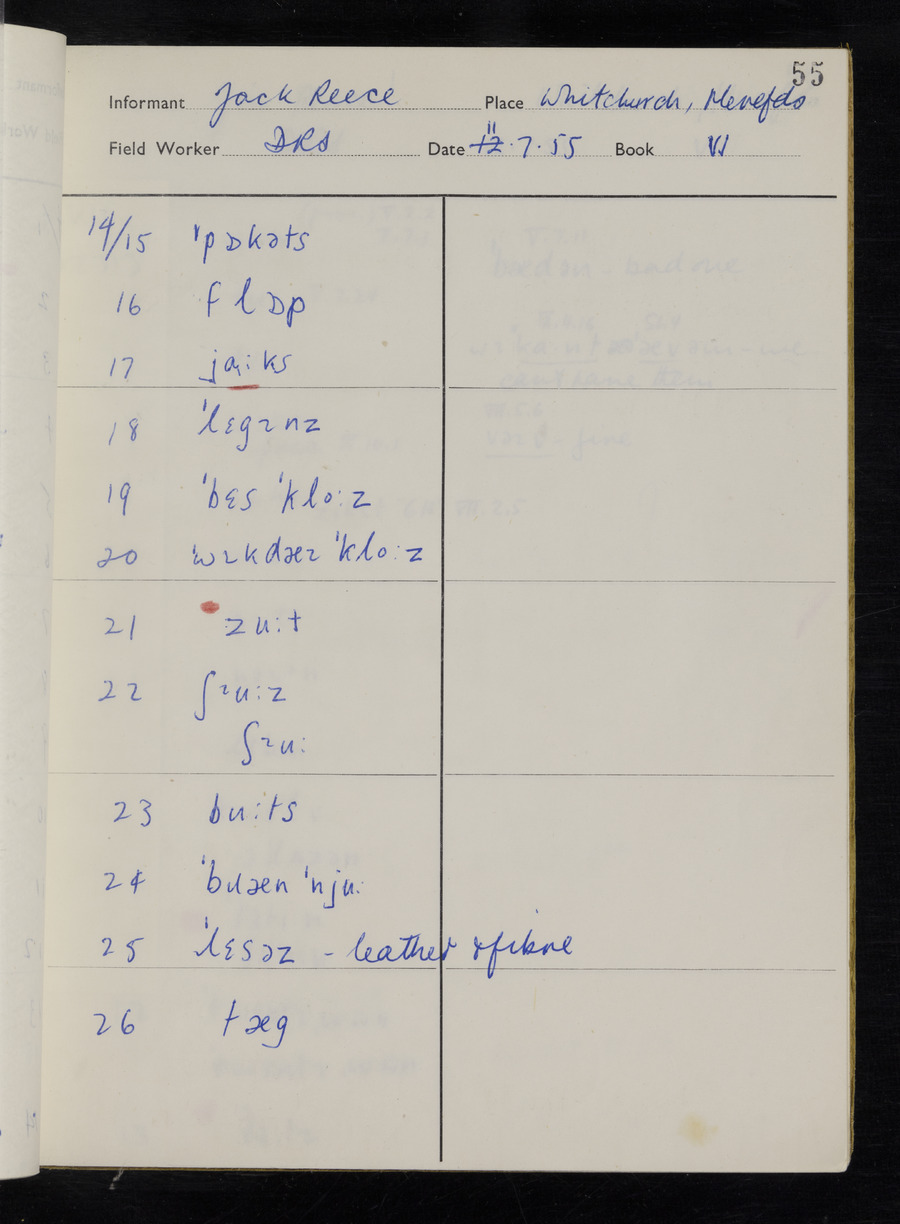 55
Informant Jack Reece Place Whitchurch, Herefds
Field Worker DRS Date 12 11.7.55 Book VI
14/15 ˈpɒkəts
16 flɒp
17 jɑiːks
18 ˈlɛgɪnz
19 ˈbɛs ˈkloːz
20 ˈwɜkdæɪ ˈkloːz
21 zuːt
22 ʃɹuːz
ʃɹuː
23 buːts
24 ˈbɹæn ˈnjuː
25 ˈlɛsəz - leather & fibre
26 tæg